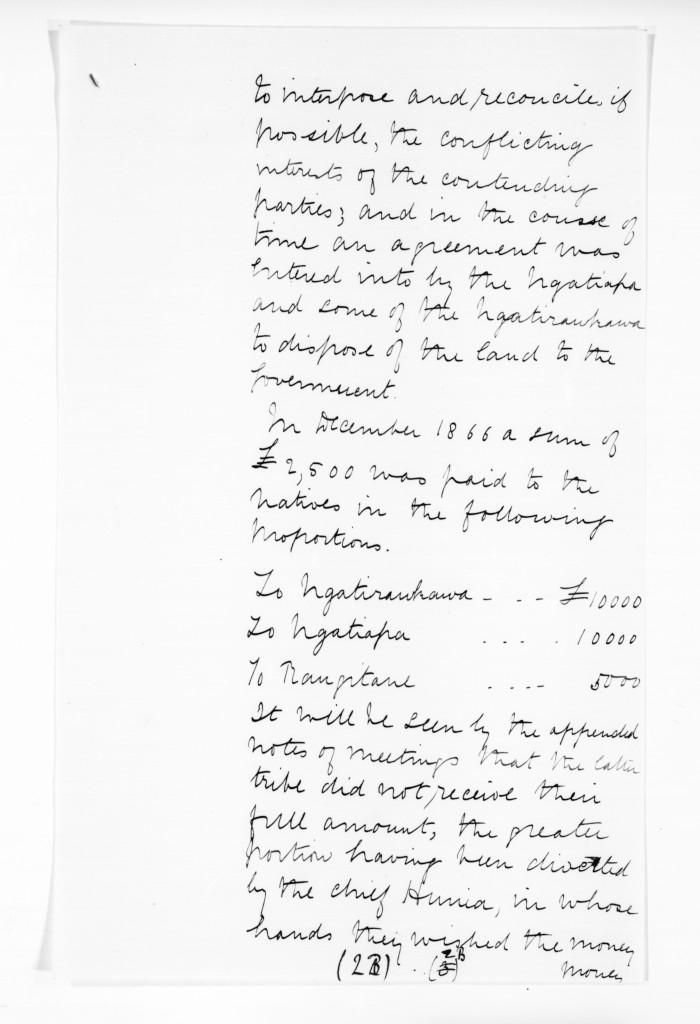 to interpose and reconcile, if
possible, the conflicting
interests of the contending
parties; and in the course of
time an agreement was
Entered into by the Ngatiapa
and some of the Ngatiraukawa
to dispose of the land to the
Government.
In December 1866 a sum of
£2,500 was paid to the
Natives in the following
proportions.
To Ngatiraukawa - . . - £10000
To Ngatiapa . . . . 10000
To Rangitane . . . . 5000
It will be seen by the appended
notes of meetings that the latter
tribe did not receive their
full amount, the greater
portion having been diverted
by the chief Hunia, in whose
hands they wished the money
(2B) . . (2B)
money